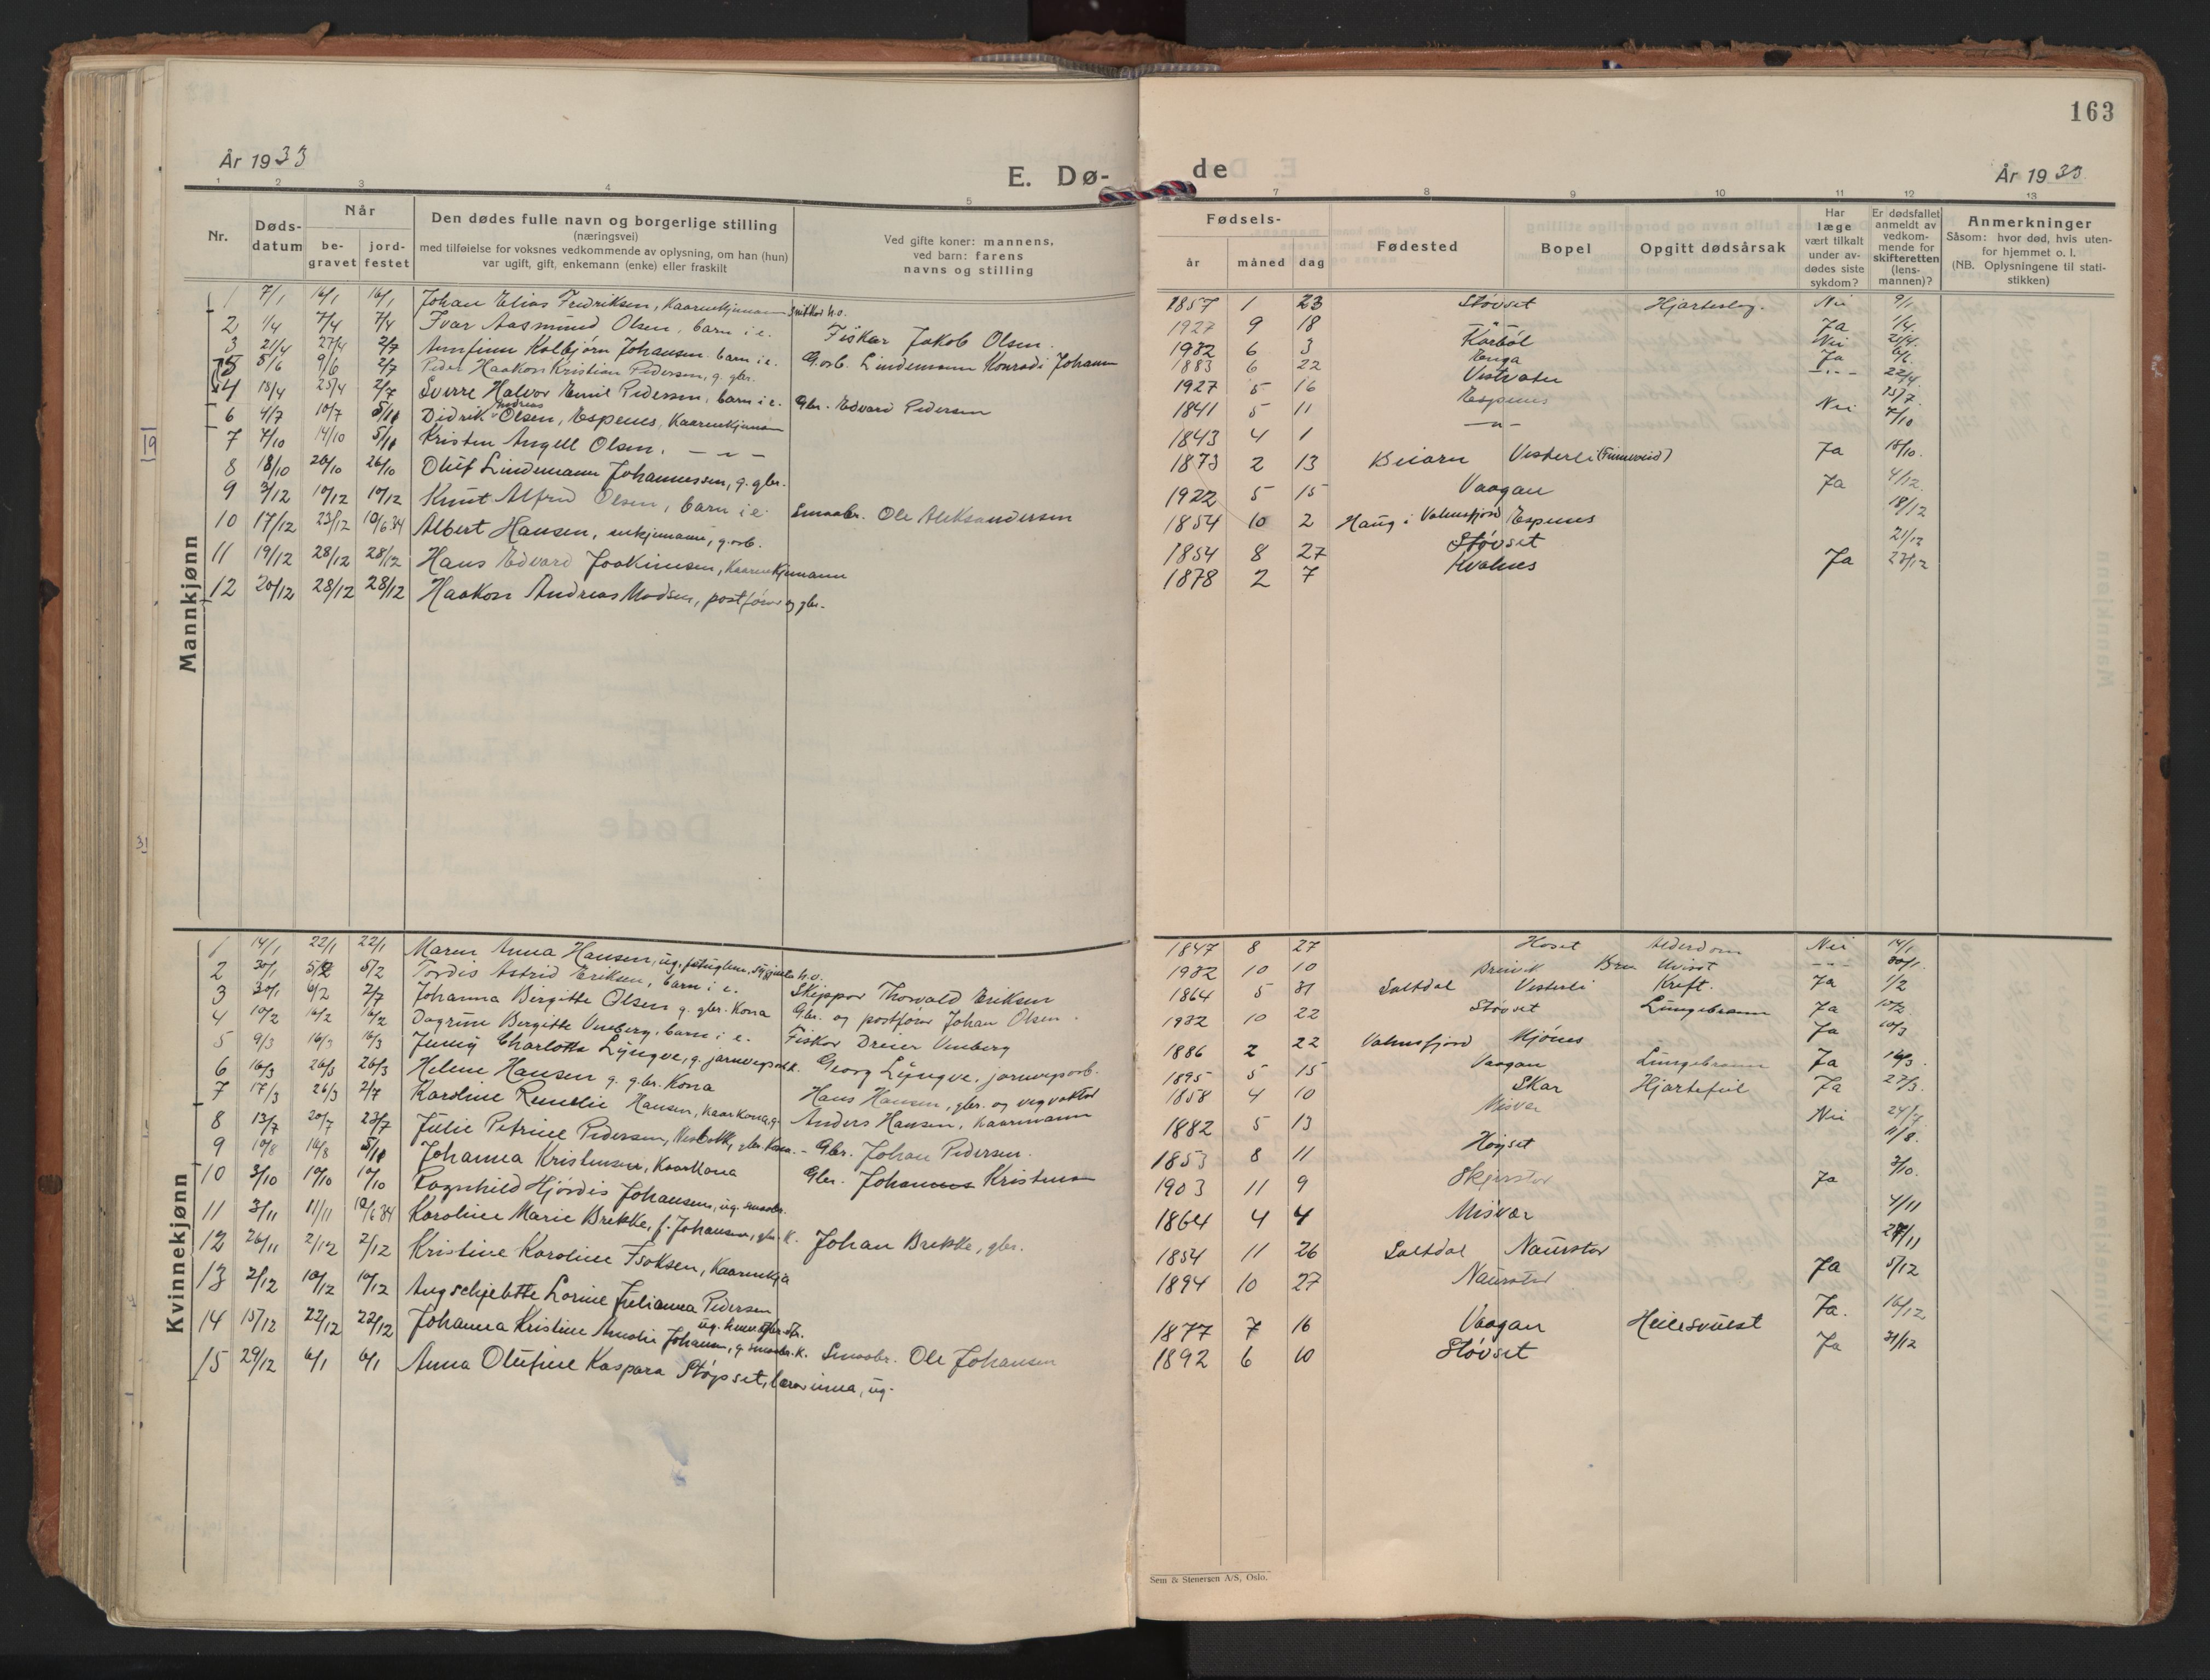 163
År 1933
E. Dø-
de
År 1933
1 2 3 4 5 7 8 9 10 11 12 13
Nr.
Døds-
datum
Når
be-
gravet
jord-
festet
Den dødes fulle navn og borgerlige stilling
(næringsvei)
med tilføielse for voksnes vedkommende av oplysning, om han (hun)
var ugift, gift, enkemann (enke) eller fraskilt
Ved gifte koner: mannens,
ved barn: farens
navns og stilling
Fødsels-
år måned dag
Fødested
Bopel
Opgitt dødsårsak
Har
læge
vært tilkalt
under av-
dødes siste
sykdom?
Er dødsfallet
anmeldt av
vedkom-
mende for
skifteretten
(lens-
mannen)?
Anmerkninger
Såsom: hvor død, hvis uten-
for hjemmet o. l.
(NB. Oplysningene til stati-
stikken)
Mannkjønn
1 7/1 16/1 16/1 Johan Elias Fredriksen, Kaarenkjemann 1857 1 23 Støvset Hjerteslag. Nei 9/1
2 1/4 7/4 7/4 Ivar Aasmund Olsen, barn i e. Fisker Jakob Olsen. 1927 9 18 Ja 1/4.
3 21/4 27/4 2/7 Arnfinn Kolbjørn Johansen barn i e. G.arb. Lindemann Konradi Johansen 1932 6 3 Karbøl Nei 21/4.
5 5/6 9/6 2/7 Peder Haakon Kristian Pedersen, g. gbr. 1883 6 22 Enga Ja 6/6.
4 18/4 25/4 2/7 Sverre Halvor Emil Pedersen, barn i e. Gbr. Edvard Pedersen 1927 5 16 Vestvatn 22/4.
6 4/7 10/7 5/11 Didrik Andreas Olsen, Espenes, Kaarenkjemann 1841 5 11 Espenes 15/7
7 4/10 14/10 5/11 Kristen Angell Olsen. — " — 1843 4 1 — " — Nei 7/10
8 18/10 26/10 26/10 Oluf Lindemann Johannessen, g. gbr. 1873 2 13 Beiarn Vesterli (Finneveid) Ja 18/10.
9 3/12 10/12 10/12 Knut Alfred Olsen, barn i e. Smaabr. Ole Aleksandersen 1922 5 15 Vaagan Ja 4/12.
10 17/12 23/12 10/6.34 Albert Hansen, enkjemann, g.arb. 1854 10 2 Haug i Valnesfjord Espenes 18/12
11 19/12 28/12 28/12 Hans Edvard Joakimsen, Kaarenkjemann 1854 8 27 Støvset 21/12
12 20/12 28/12 28/12 Haakon Andreas Madsen, postfører og gbr. 1878 2 7 Kvalnes Ja 27/12
Kvinnekjønn
1 14/1 22/1 22/1 Maren Anna Hansen, ug. 1847 8 27 Hoset Alderdom Nei 14/1
2 30/1 5/2 5/2 Tordis Astrid Eriksen, barn i e. Skipper Thorvald Eriksen 1932 10 10 Breivik Uvisst — " — 30/1.
3 30/1 6/2 2/7 Johanna Birgitte Olsen g. gbr. Kona Gbr. og postfører Johan Olsen. 1864 5 31 Saltdal Vesterli Kreft. Ja 1/2
4 10/2 16/2 16/2 Dagrun Bergitte Venberg, barn i e. Fisker Dreier Venberg 1932 10 22 Støvset Lungebrann Ja
5 9/3 16/3 16/3 Jenny Charlotta Lyngve, g. jarnvegsarb.k. Georg Lyngve, jarnvegsarb. 1886 2 22 Valnesfjord Mjønes Ja 10/3
6 16/3 26/3 26/3 Helene Hansen g. gbr. Kona Hans Hansen, gbr. og vegvokter 1895 5 15 Vaagan Lungebrann Ja 16/3
7 17/3 26/3 2/7 Karoline Remelie Hansen, Kaarkona, g. Anders Hansen, Kaarmann 1858 4 10 Skar Hjertefeil Ja 27/3.
8 13/7 20/7 23/7 Julie Petrine Pedersen, gbr. Kona. - Gbr. Johan Pedersen. 1882 5 13 Misvær Nei 24/7
9 10/8 16/8 5/11 Johanna Kristensen, Kaarkona Gbr. Johannes Kristensen 1853 8 11 Høgset 11/8.
10 3/10 10/10 10/10 Ragnhild Hjørdis Johansen, ug. smaabr. 1903 11 9 Skjerstad Ja 3/10.
11 3/11 11/11 10/6 34 Karoline Marie Brekke, f. Johansen, gbr. K. Johan Brekke, gbr. 1864 4 4 Misvær 4/11
12 26/11 2/12 2/12 Kristine Karoline Isaksen, Kaarenkja 1854 11 26 Saltdal Naurstad 27/11
13 2/12 10/12 10/12 Angschjelotte Lorine Julianna Pedersen 1894 10 27 Naurstad Ja 5/12
14 15/12 22/12 22/12 Johanna Kristine Amalie Johansen, g. smaabr. K. Smaabr. Ole Johansen 1877 7 16 Vaagan Heilesvulst Ja. 16/12.
15 29/12 6/1 6/1 Anna Olufine Kaspara Støvset, lærerinna, ug. 1892 6 10 Støvset Ja 31/12
Sem & Stenersen A/S, Oslo.